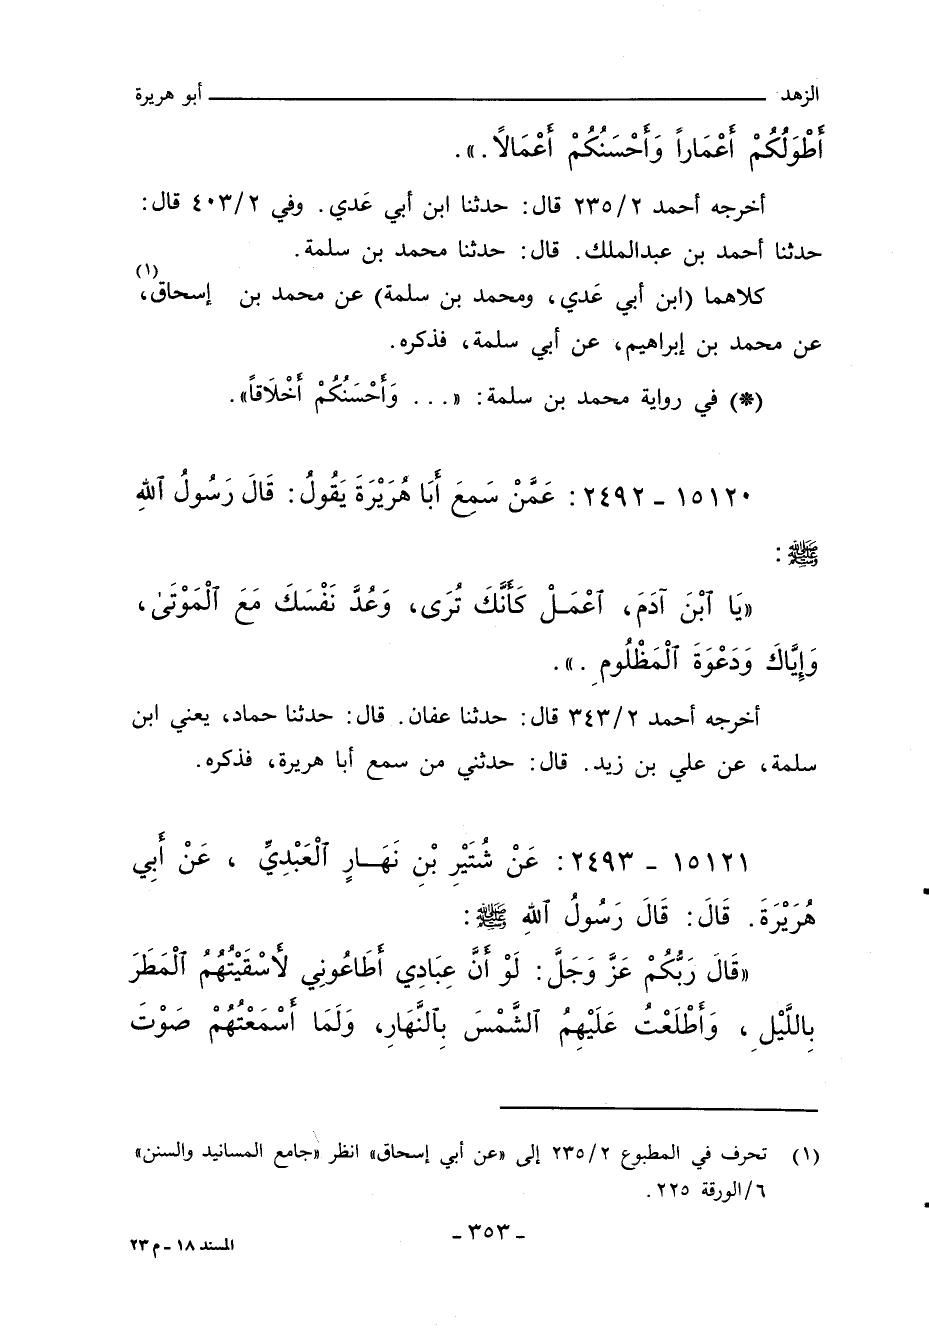 الزهد ــــــــــــــــــــــــــــــ أبو هريرة
أَطْوَلُكُمْ أَعْمَاراً وَأَحْسَنُكُمْ أَعْمَالًا .».
أخرجه أحمد ٢/ ٢٣٥ قال: حدثنا ابن أبي عَدي. وفي ٢/ ٤٠٣ قال:
حدثنا أحمد بن عبدالملك. قال: حدثنا محمد بن سلمة.
كلاهما (ابن أبي عَدي، ومحمد بن سلمة) عن محمد بن إسحاق(١)،
عن محمد بن إبراهيم، عن أبي سلمة، فذكره.
(*) في رواية محمد بن سلمة: «... وَأَحْسَنُكُمْ أَخْلَاقاً».
١٥١٢٠ - ٢٤٩٢: عَمَّنْ سَمِعَ أَبَا هُرَيْرَةَ يَقُولُ: قَالَ رَسُولُ ٱللهِ
ﷺ:
«يَا ٱبْنَ آدَمَ، ٱعْمَلْ كَأَنَّكَ تُرَى، وَعُدَّ نَفْسَكَ مَعَ ٱلْمَوْتَىٰ،
وَإِيَّاكَ وَدَعْوَةَ ٱلْمَظْلُومِ .».
أخرجه أحمد ٢/ ٣٤٣ قال: حدثنا عفان. قال: حدثنا حماد، يعني ابن
سلمة، عن علي بن زيد. قال: حدثني من سمع أبا هريرة، فذكره.
١٥١٢١ - ٢٤٩٣: عَنْ شُتَيْرِ بْنِ نَهَارٍ ٱلْعَبْدِيِّ ، عَنْ أَبِي
هُرَيْرَةَ. قَالَ: قَالَ رَسُولُ ٱللهِ ﷺ:
«قَالَ رَبُّكُمْ عَزَّ وَجَلَّ: لَوْ أَنَّ عِبَادِي أَطَاعُونِي لَأَسْقَيْتُهُمُ ٱلْمَطَرَ
بِاللَّيْلِ، وَأَطْلَعْتُ عَلَيْهِمُ ٱلشَّمْسَ بِٱلنَّهَارِ، وَلَمَا أَسْمَعْتُهُمْ صَوْتَ
(١) تحرف في المطبوع ٢/ ٢٣٥ إلى «عن أبي إسحاق» انظر «جامع المسانيد والسنن»
٦/الورقة ٢٢٥.
- ٣٥٣ -
المسند ١٨ - م ٢٣